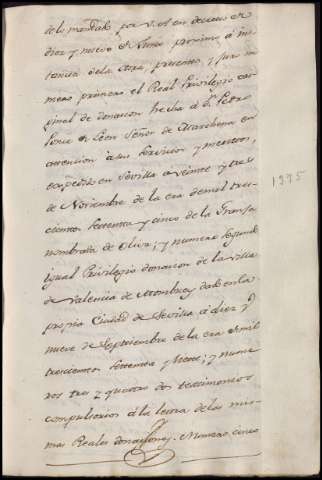 de lo mandado por V. S. en decreto de
diez y nueve de Junio proximo á ins
tancia de la otra, presento, y son nu
meros primero el Real Privilegio ori
ginal de donacion hecha á Dn. Pedro
Ponce de Leon Señor de Marchena en
attencion á sus servicios y meritos,
expedido en Sevilla á veinte y tres
de Noviembre de la era de mil tres-
cientos settenta y cinco de la Granja
nombrada de Oliva; y numero segundo
igual Privilegio donacion de la villa
de Valencia de Mombuey dado en la
propia Ciudad de Sevilla á diez y
nueve de Septiembre de la era de mil
trescientos settenta y siete; y nume
ros tres y quatro dos testimonios
compulsorios á la letra de las mis-
mas Reales donaciones. Numero cinco
1375